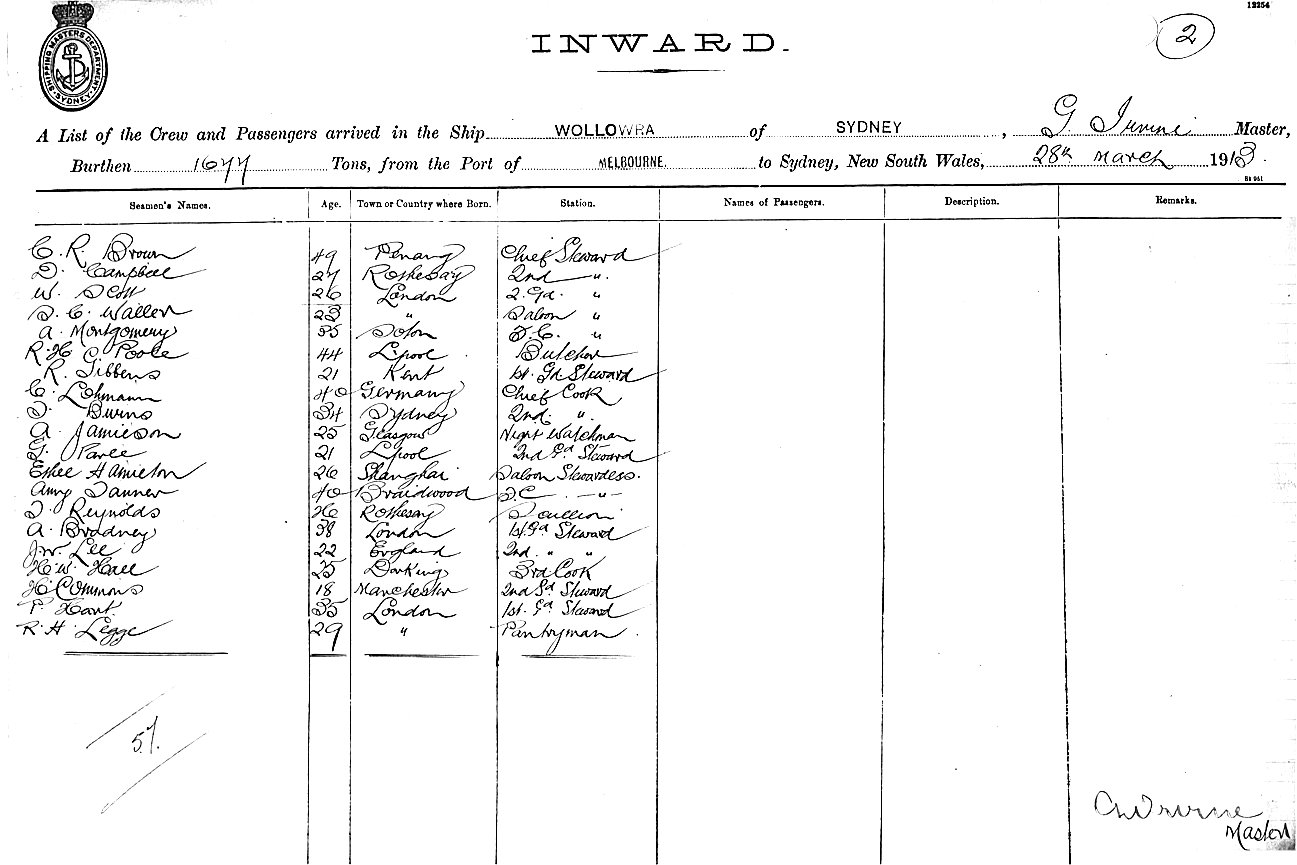 12254
SHIPPING MASTERS DEPARTMENT
SYDNEY
INWARD.
2
A List of the Crew and Passengers arrived in the Ship WOLLOWRA of SYDNEY, G. Irvine Master,
Burthen 1677 Tons, from the Port of MELBOURNE. to Sydney, New South Wales, 28th March 1913.
Seamen's Names. Age. Town or Country where Born. Station. Names of Passengers. Description. Remarks.
C. R. Brown 49 Penang Chief Steward
D. Campbell 27 Rothesay 2nd "
W. Scott 26 London 2. Gd. "
S. C. Waller 23 " Saloon "
A. Montgomery 35 Soton S.C. "
R. H. C. Poole 44 Lpool Butcher
R. Tibbens 21 Kent 1st. Gd Steward
C. Lehmann 40 Germany Chief Cook
T. Burns 34 Sydney 2nd. "
A. Jamieson 25 Glasgow Night Watchman
G. 21 Lpool 2nd Gd Steward
Hamilton 26 Shanghai Saloon Stewardess.
Amy Tanner 40 Braidwood S.C — " —
T. Reynolds 26 Rothesay Scullion
A. Bradney 38 London 1st. Gd Steward
J. W. Lee 22 England 2nd. " "
H. W. Hall 25 Dorking 3rd Cook
H. Commons 18 Manchester 2nd Gd Steward
P. Hant 35 London 1st. Gd Steward
R. H. Legge 29 " Pantryman
57.
Irvine
Master